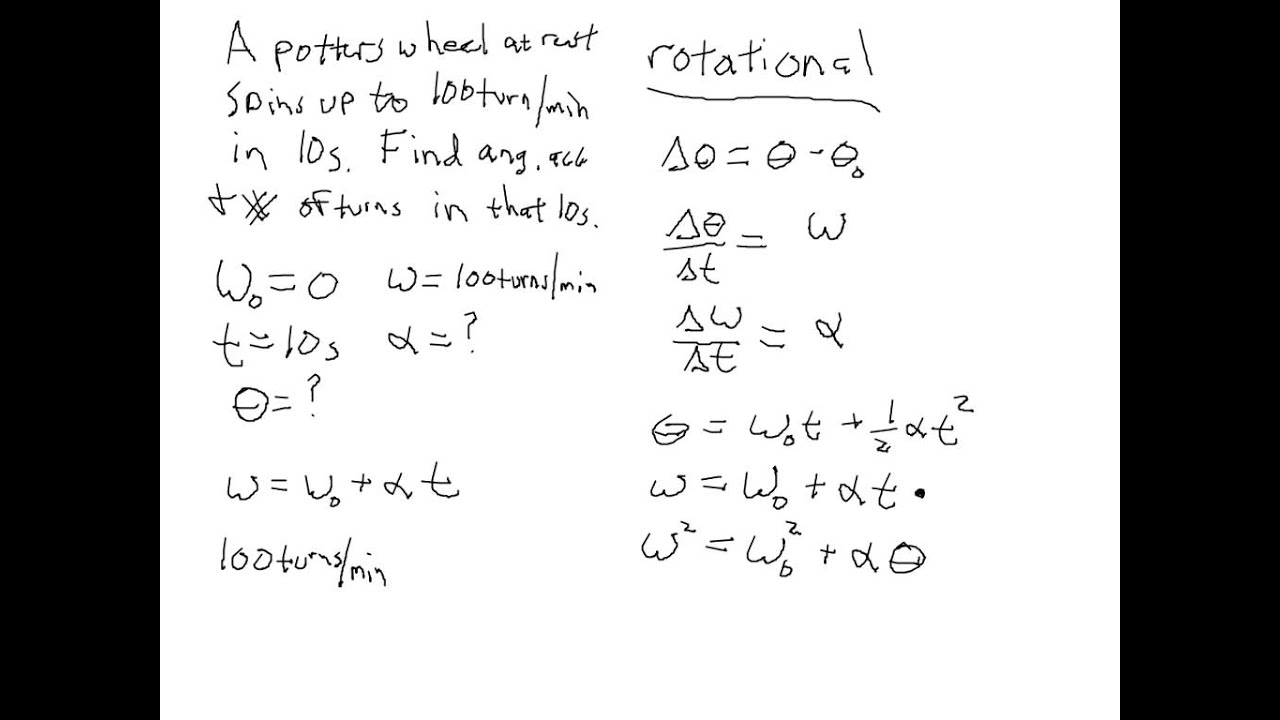 A potters wheel at rest
spins up to 100turn/min
in 10s. Find ang. acc
+ # of turns in that 10s.
ω₀ = 0 ω = 100turns/min
t = 10s α = ?
θ = ?
ω = ω₀ + αt
100turns/min
rotational
Δθ = θ - θ₀
Δθ/Δt = ω
Δω/Δt = α
θ = ω₀t + 1/2 αt²
ω = ω₀ + αt
ω² = ω₀² + αθ